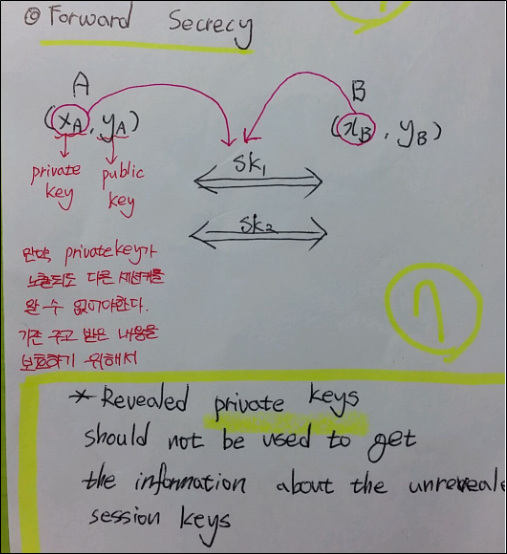 ◎ Forward Secrecy
A
B
(xA, yA)
(xB, yB)
private key
public key
sk1
sk2
만약 private key가
노출되도 다른 세션키를
알 수 없어야한다.
기존 주고 받은 내용을
보호하기 위해서
7
* Revealed private keys
should not be used to get
the information about the unreveale
session keys